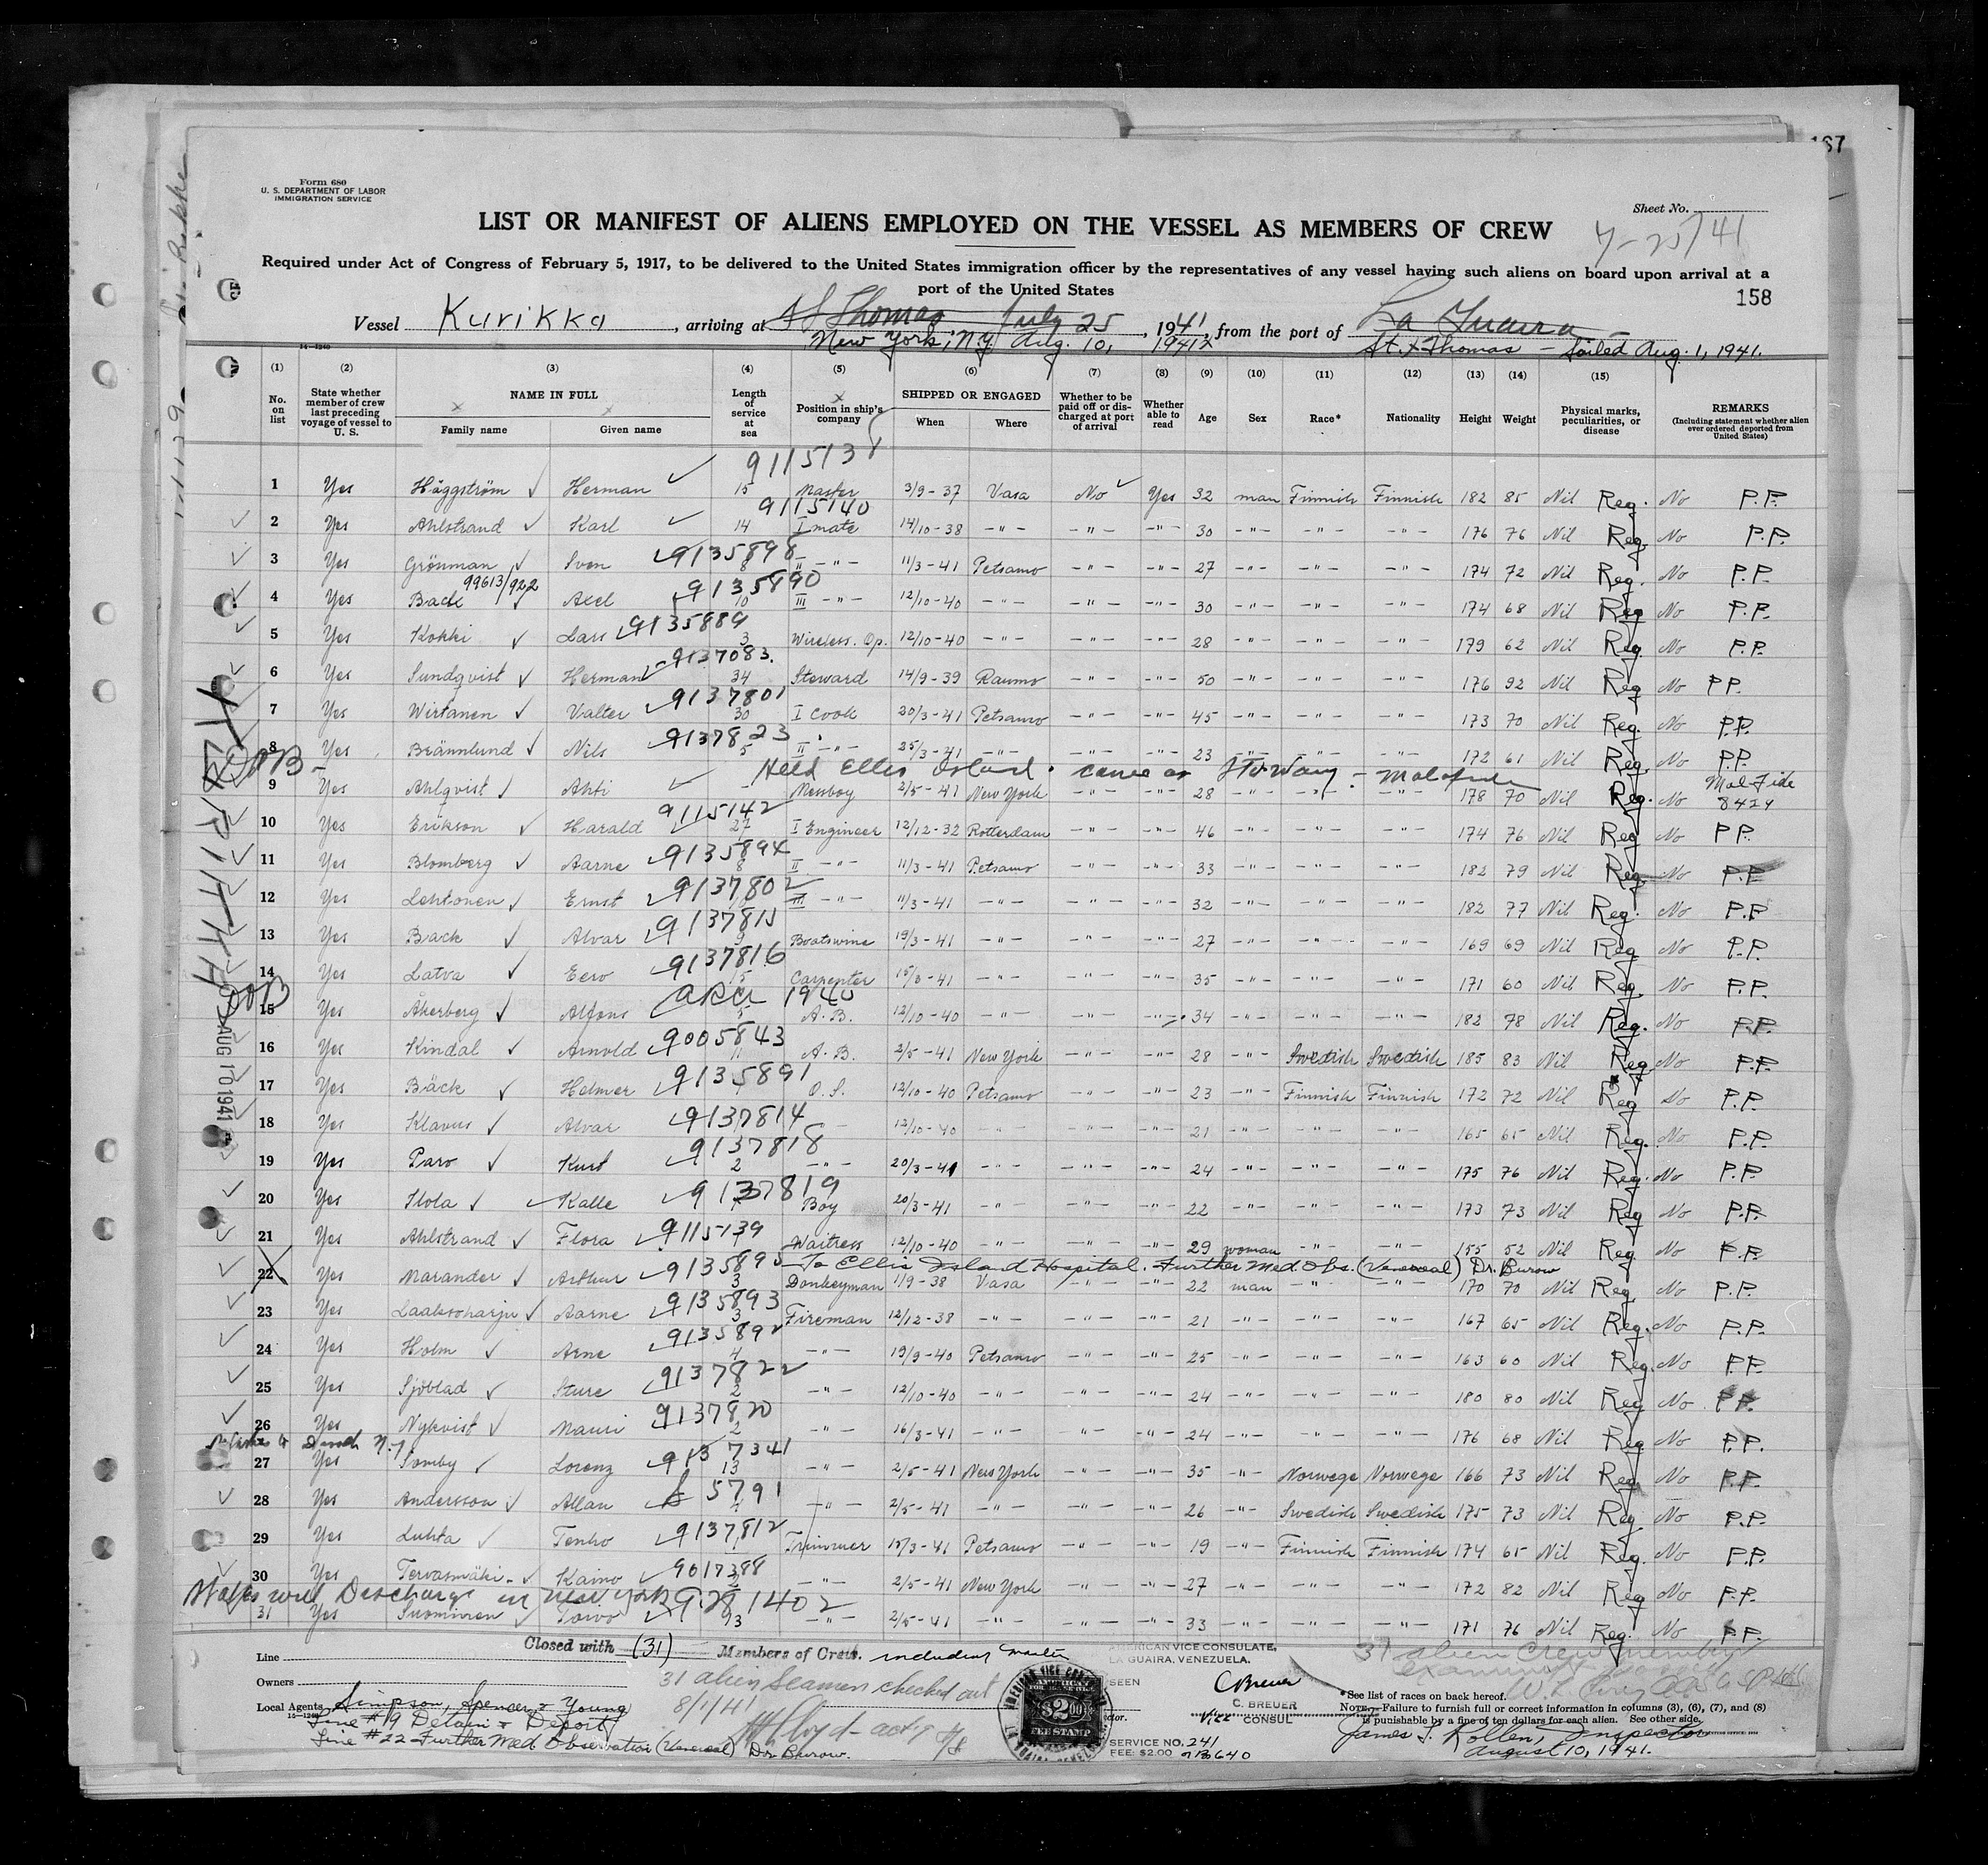 167
Form 680
U. S. DEPARTMENT OF LABOR
IMMIGRATION SERVICE
Sheet No.
LIST OR MANIFEST OF ALIENS EMPLOYED ON THE VESSEL AS MEMBERS OF CREW
7-25/41
Required under Act of Congress of February 5, 1917, to be delivered to the United States immigration officer by the representatives of any vessel having such aliens on board upon arrival at a
port of the United States
158
Vessel Kurikka, arriving at St Thomas July 25, 1941, from the port of La Guaira
New York, N.Y. Aug. 10, 1941 St. Thomas - Sailed Aug. 1, 1941.
(1) (2) (3) (4) (5) (6) (7) (8) (9) (10) (11) (12) (13) (14) (15)
No. on list State whether member of crew last preceding voyage of vessel to U. S. NAME IN FULL Family name Given name Length of service at sea Position in ship's company SHIPPED OR ENGAGED When Where Whether to be paid off or discharged at port of arrival Whether able to read Age Sex Race* Nationality Height Weight Physical marks, peculiarities, or disease REMARKS (Including statement whether alien ever ordered deported from United States)
1 Yes Häggström Herman 15 Master 3/9-37 Vasa No Yes 32 man Finnish Finnish 182 85 Nil Reg. No P.P.
9115140
2 Yes Ahlstrand Karl 14 I mate 14/10-38 -"- -"- -"- 30 -"- -"- -"- 176 76 Nil Reg. No P.P.
9135898
3 Yes Grönman Sven 8 II -"- 11/3-41 Petsamo -"- -"- 27 -"- -"- -"- 174 72 Nil Reg. No P.P.
99613/922 9135890
4 Yes Back Axel 10 III -"- 12/10-40 -"- -"- -"- 30 -"- -"- -"- 174 68 Nil Reg No P.P.
9135889
5 Yes Kokki Lars 3 Wireless. Op. 12/10-40 -"- -"- -"- 28 -"- -"- -"- 179 62 Nil Reg. No P.P.
9137083
6 Yes Sundqvist Herman 34 Steward 14/9-39 Raumo -"- -"- 50 -"- -"- -"- 176 92 Nil Reg No P.P.
9137801
7 Yes Wirtanen Valter 30 I Cook 20/3-41 Petsamo -"- -"- 45 -"- -"- -"- 173 70 Nil Reg. No P.P.
9137823
8 Yes Brännlund Nils 5 II -"- 25/3-41 -"- -"- -"- 23 -"- -"- -"- 172 61 Nil Reg. No P.P.
Held Ellis Island. came as Stoway - Malafide
9 Yes Ahlqvist Ahti - Messboy 2/5-41 New York -"- -"- 28 -"- -"- -"- 178 70 Nil Reg. No Mal Fide 8424
9115142
10 Yes Erikson Harald 27 I Engineer 12/12-32 Rotterdam -"- -"- 46 -"- -"- -"- 174 76 Nil Reg No P.P.
9135894
11 Yes Blomberg Aarne 8 II -"- 11/3-41 Petsamo -"- -"- 33 -"- -"- -"- 182 79 Nil Reg No P.P.
9137802
12 Yes Lehtonen Ernst III -"- 11/3-41 -"- -"- -"- 32 -"- -"- -"- 182 77 Nil Reg. No P.P.
13 Yes Back Alvar 9 Boatswine 19/3-41 -"- -"- -"- 27 -"- -"- -"- 169 69 Nil Reg No P.P.
9137816
14 Yes Latva Eero 15 Carpenter 15/3-41 -"- -"- -"- 35 -"- -"- -"- 171 60 Nil Reg. No P.P.
1940
15 Yes Åkerberg Alfons 5 A.B. 12/10-40 -"- -"- -"- 34 -"- -"- -"- 182 78 Nil Reg. No P.P.
9005843
16 Yes Kindal Arnold 11 A.B. 2/5-41 New York -"- -"- 28 -"- Swedish Swedish 185 83 Nil Reg No P.P.
9135891
17 Yes Bäck Helmer O.S. 12/10-40 Petsamo -"- -"- 23 -"- Finnish Finnish 172 72 Nil Reg No P.P.
9137814
18 Yes Klavus Alvar 12/10-40 -"- -"- -"- 21 -"- -"- -"- 165 65 Nil Reg. No P.P.
9137818
19 Yes Paro Kurt 2 -"- 20/3-41 -"- -"- -"- 24 -"- -"- -"- 175 76 Nil Reg. No P.P.
9137819
20 Yes Ilola Kalle Boy 20/3-41 -"- -"- -"- 22 -"- -"- -"- 173 73 Nil Reg No P.P.
9115139
21 Yes Ahlstrand Flora 1 Waitress 12/10-40 -"- -"- -"- 29 woman -"- -"- 155 52 Nil Reg No P.P.
9135895 To Ellis Island Hospital. Further Med Obs. (Venereal) Dr. Burow
22 Yes Marander Arthur 3 Donkeyman 1/9-38 Vasa -"- -"- 22 man -"- -"- 170 70 Nil Reg. No P.P.
9135893
23 Yes Laaksoharju Aarne 3 Fireman 12/12-38 -"- -"- -"- 21 -"- -"- -"- 167 65 Nil Reg. No P.P.
9135892
24 Yes Holm Arne 4 -"- 19/9-40 Petsamo -"- -"- 25 -"- -"- -"- 163 60 Nil Reg. No P.P.
9137822
25 Yes Sjöblad Sture 2 -"- 12/10-40 -"- -"- -"- 24 -"- -"- -"- 180 80 Nil Reg No P.P.
9137820
26 Yes Nykvist Mauri 2 -"- 16/3-41 -"- -"- -"- 24 -"- -"- -"- 176 68 Nil Reg No P.P.
9137341
27 Yes Somby Lorenz 13 -"- 2/5-41 New York -"- -"- 35 -"- Norwege Norwege 166 73 Nil Reg. No P.P.
5791
28 Yes Andersson Allan -"- 2/5-41 -"- -"- -"- 26 -"- Swedish Swedish 175 73 Nil Reg No P.P.
9137812
29 Yes Luhta Tenho 1 Trimmer 15/3-41 Petsamo -"- -"- 19 -"- Finnish Finnish 174 65 Nil Reg. No P.P.
9017388
30 Yes Tervasmäki Kaino 2 -"- 2/5-41 New York -"- -"- 27 -"- -"- -"- 172 82 Nil Reg No P.P.
will Discharge in New York
31 Yes Suominen Toivo 13 -"- 2/5-41 -"- -"- -"- 33 -"- -"- -"- 171 76 Nil Reg. No P.P.
AUG 10 1941
Closed with (31) Members of Crew. including Master
Line
Owners
31 alien Seamen checked out
8/1/41
Local Agents Simpson, Spence & Young
Line #9 Detain & Deport
Line #22 Further Med Observation (Venereal) Dr. Burow.
AMERICAN VICE CONSULATE,
LA GUAIRA, VENEZUELA.
SEEN
C Breuer
C. BREUER
Vice CONSUL
$2.00
FEE STAMP
SERVICE NO. 241
FEE: $2.00
31 alien crew members
examined
*See list of races on back hereof.
NOTE.—Failure to furnish full or correct information in columns (3), (6), (7), and (8)
is punishable by a fine of ten dollars for each alien. See other side.
James J. Rollen, Inspector
August 10, 1941.